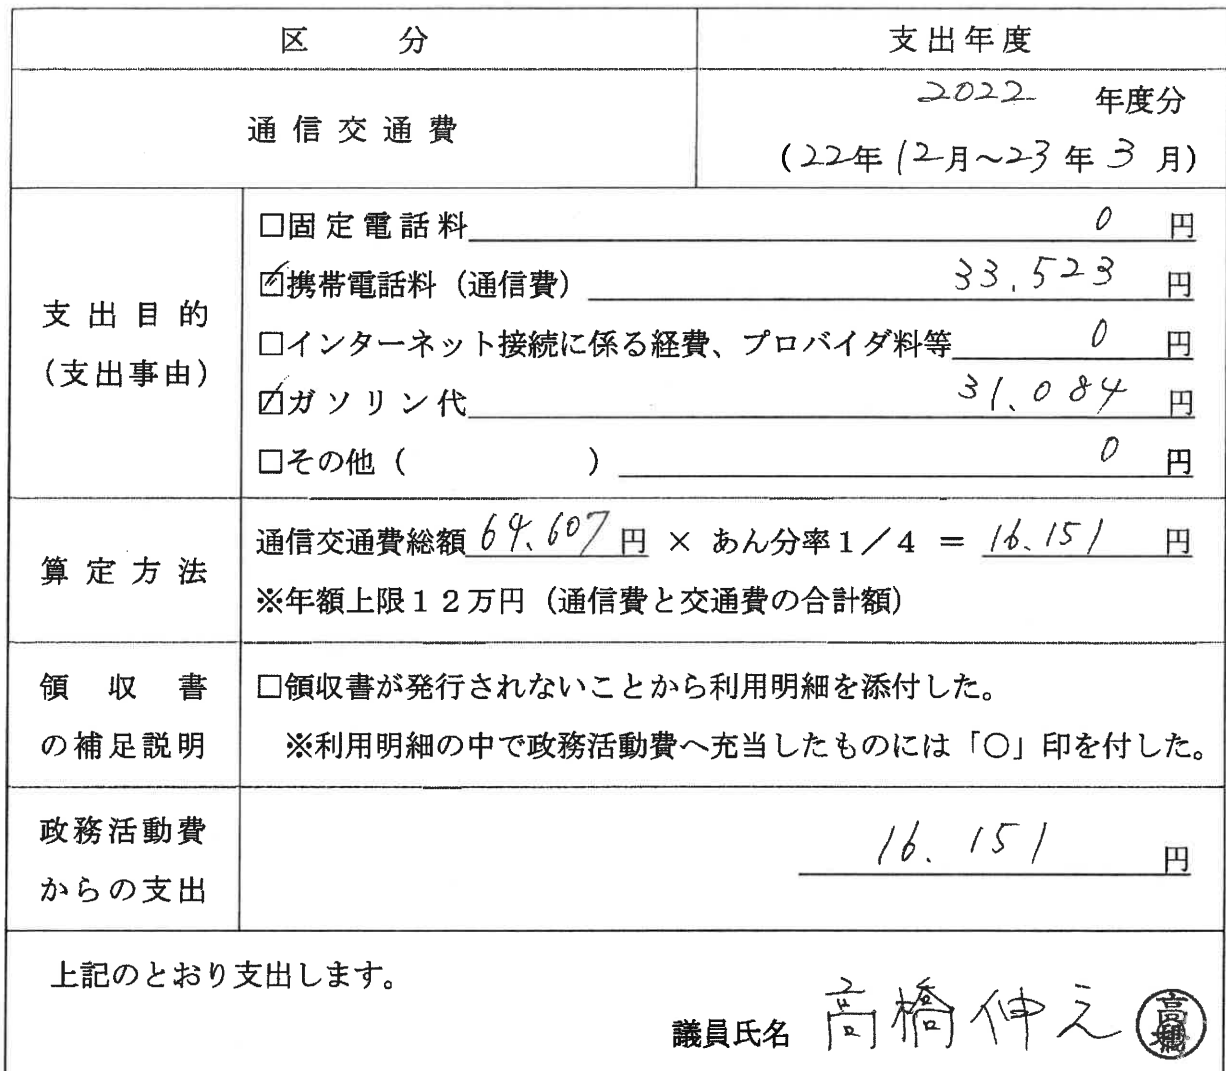 区　分　支出年度
通信交通費　2022 年度分
(22年12月～23年3月)
支出目的
(支出事由)
□固定電話料 0 円
☑携帯電話料（通信費） 33,523 円
□インターネット接続に係る経費、プロバイダ料等 0 円
☑ガソリン代 31,084 円
□その他（　　　） 0 円
算定方法
通信交通費総額 64,607 円 × あん分率1／4 ＝ 16,151 円
※年額上限12万円（通信費と交通費の合計額）
領収書
の補足説明
□領収書が発行されないことから利用明細を添付した。
※利用明細の中で政務活動費へ充当したものには「○」印を付した。
政務活動費
からの支出
16,151 円
上記のとおり支出します。
議員氏名 高橋伸之 高橋